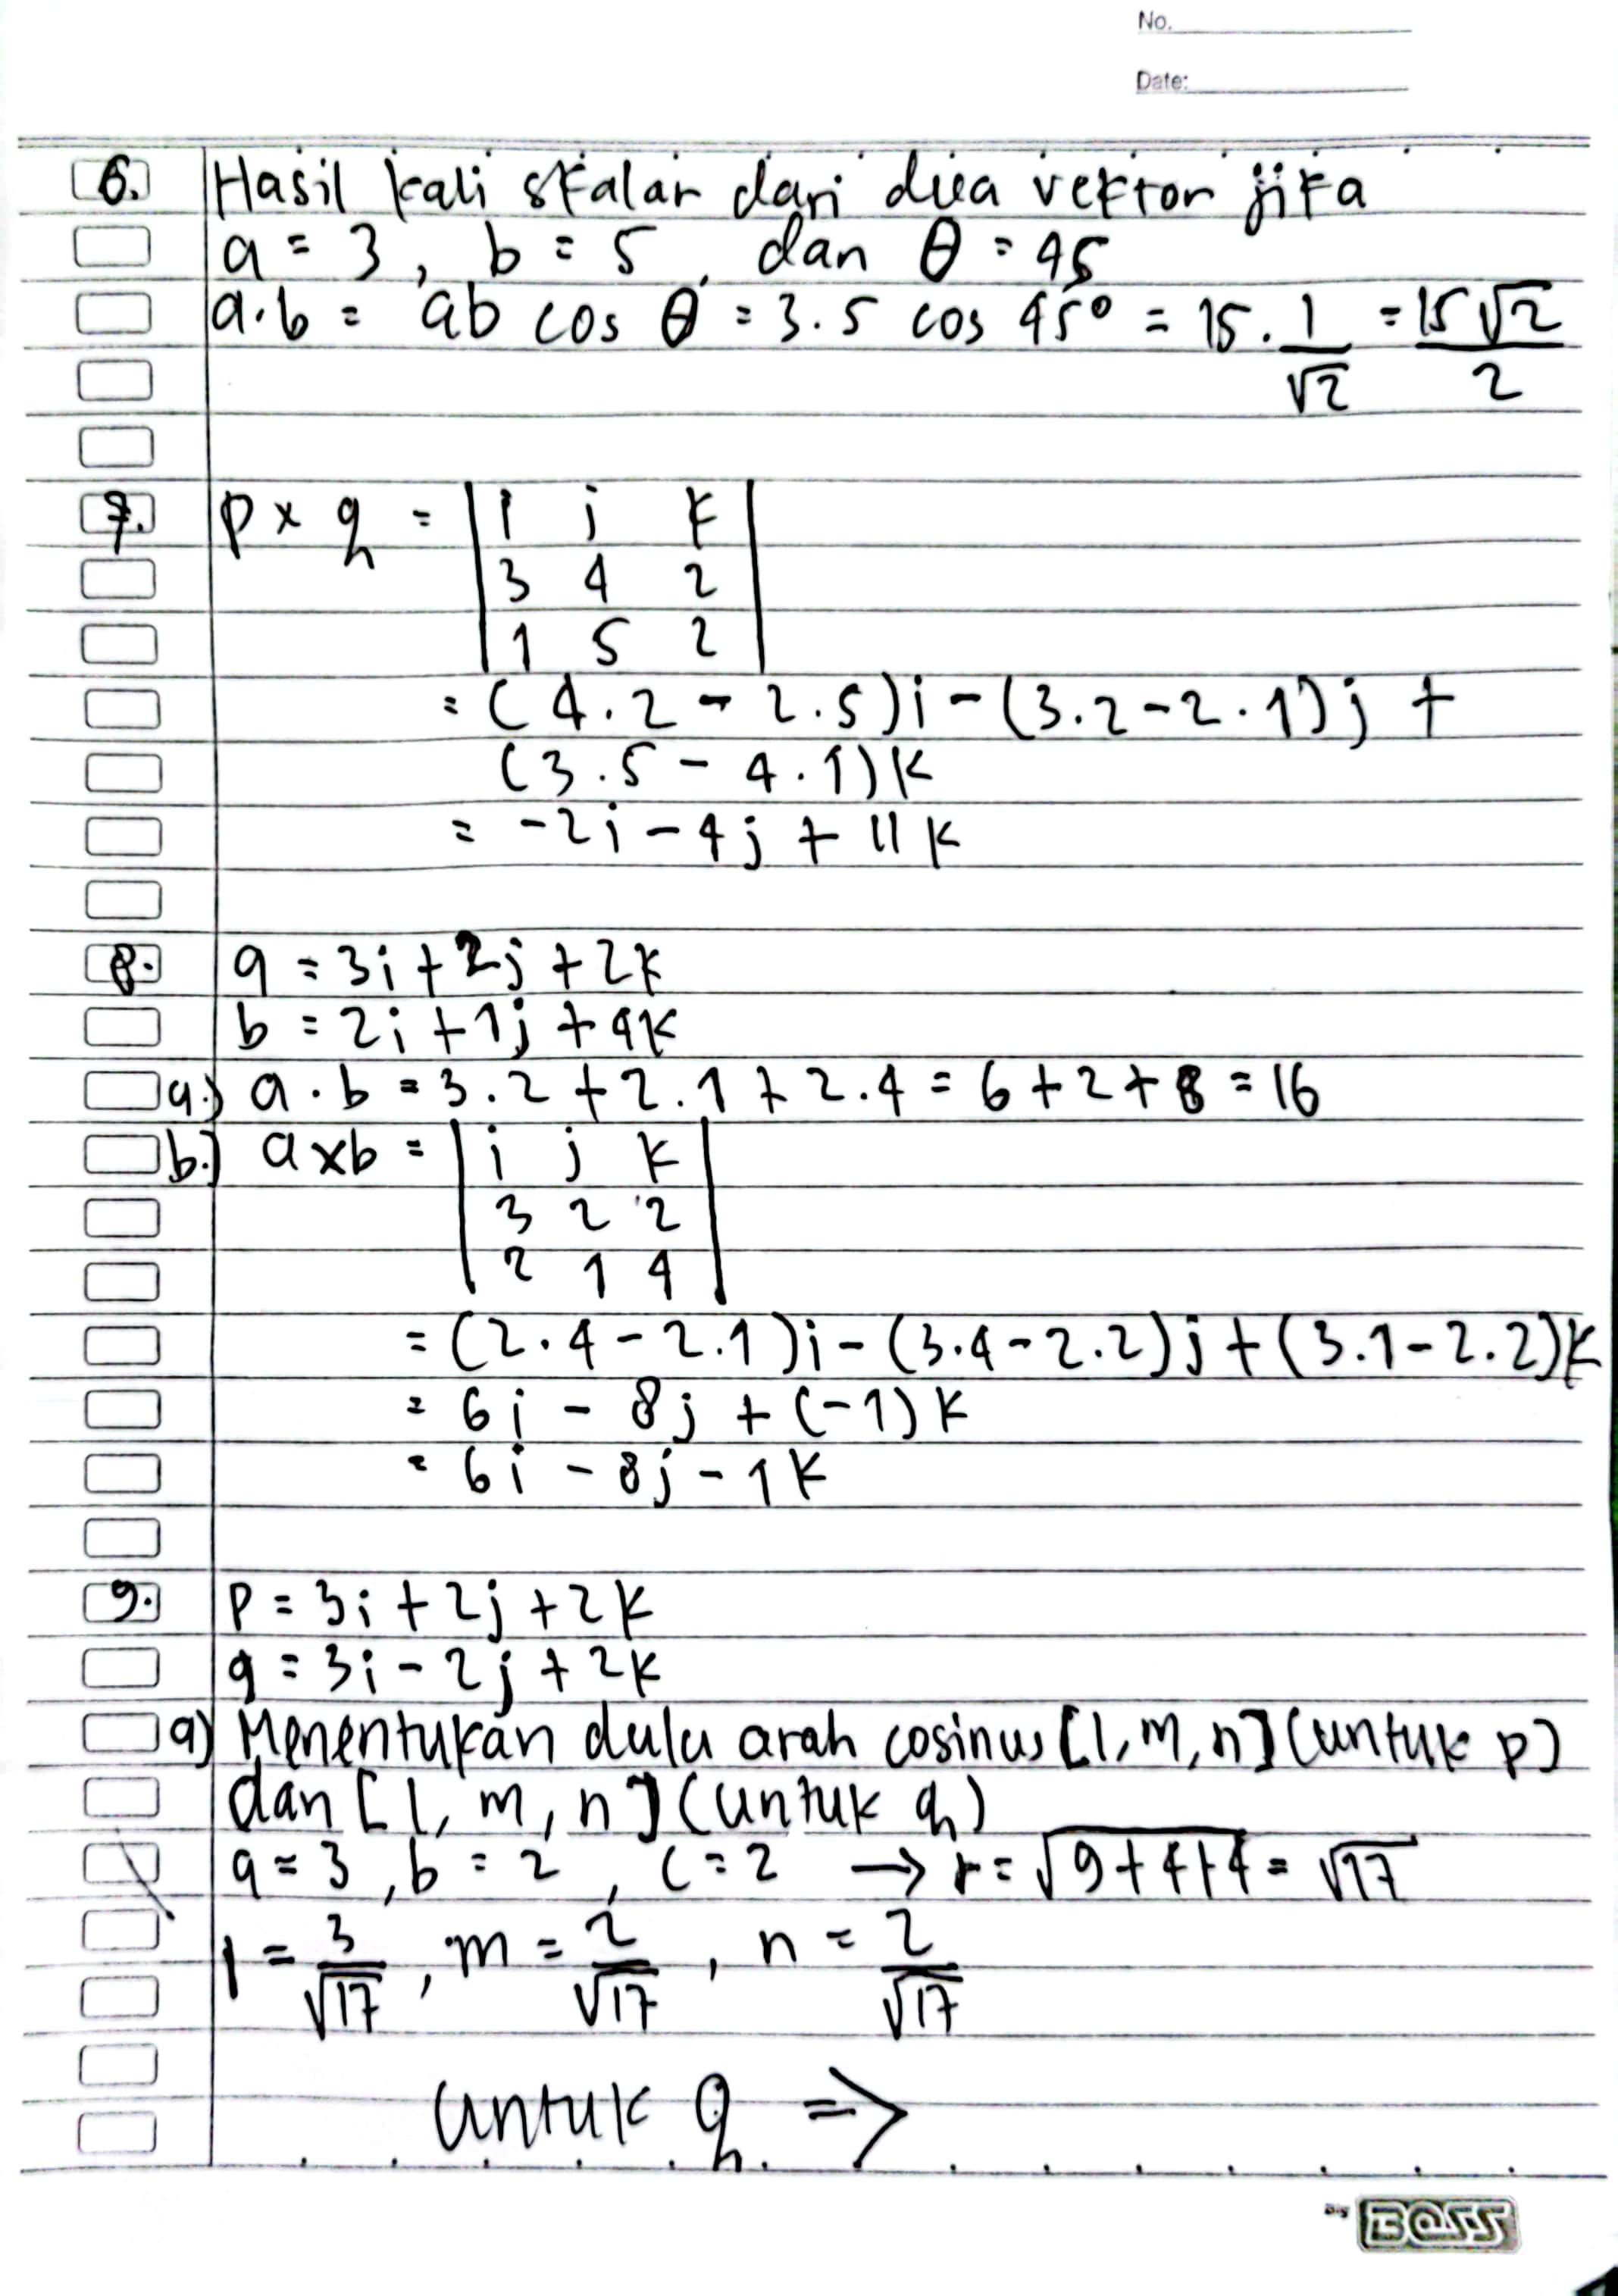 No.
Date:
6. Hasil kali skalar dari dua vektor jika
a = 3, b = 5, dan θ = 45
a.b = ab cos θ = 3.5 cos 45° = 15 . 1/√2 = 15√2/2
7. p x q = | i j k |
| 3 4 2 |
| 1 5 2 |
= (4.2 - 2.5)i - (3.2 - 2.1)j +
(3.5 - 4.1)k
= -2i - 4j + 11k
8. a = 3i + 2j + 2k
b = 2i + 1j + 4k
a.) a . b = 3.2 + 2.1 + 2.4 = 6 + 2 + 8 = 16
b.) a x b = | i j k |
| 3 2 2 |
| 2 1 4 |
= (2.4 - 2.1)i - (3.4 - 2.2)j + (3.1 - 2.2)k
= 6i - 8j + (-1)k
= 6i - 8j - 1k
9. p = 3i + 2j + 2k
q = 3i - 2j + 2k
a) Menentukan dulu arah cosinus [l, m, n] (untuk p)
dan [l, m, n] (untuk q)
a = 3, b = 2, c = 2 → r = √9+4+4 = √17
l = 3/√17, m = 2/√17, n = 2/√17
untuk q ⇒
Big BOSS